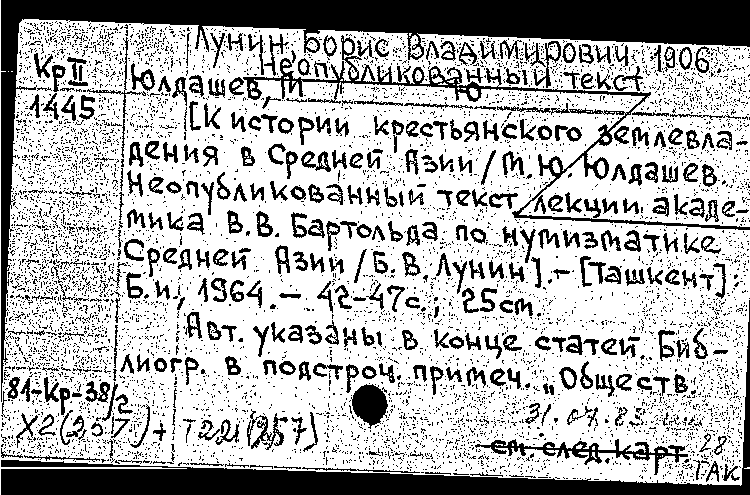 Лунин, Борис Владимирович, 1906.
Неопубликованный текст
Кр II
1445
Юлдашев, М Ю
[К истории крестьянского землевла-
дения в Средней Азии / М.Ю. Юлдашев.
Неопубликованный текст лекции акаде-
мика В.В. Бартольда по нумизматике
Средней Азии / Б.В. Лунин]. - [Ташкент]:
Б.и., 1964. - 42-47с.; 25см.
Авт. указаны в конце статей. Биб-
лиогр. в подстроч. примеч. „Обществ.
81-Кр-38/2
31.07.83
Х2(257) + Т221(257)
см. след. карт. 28
ГАК